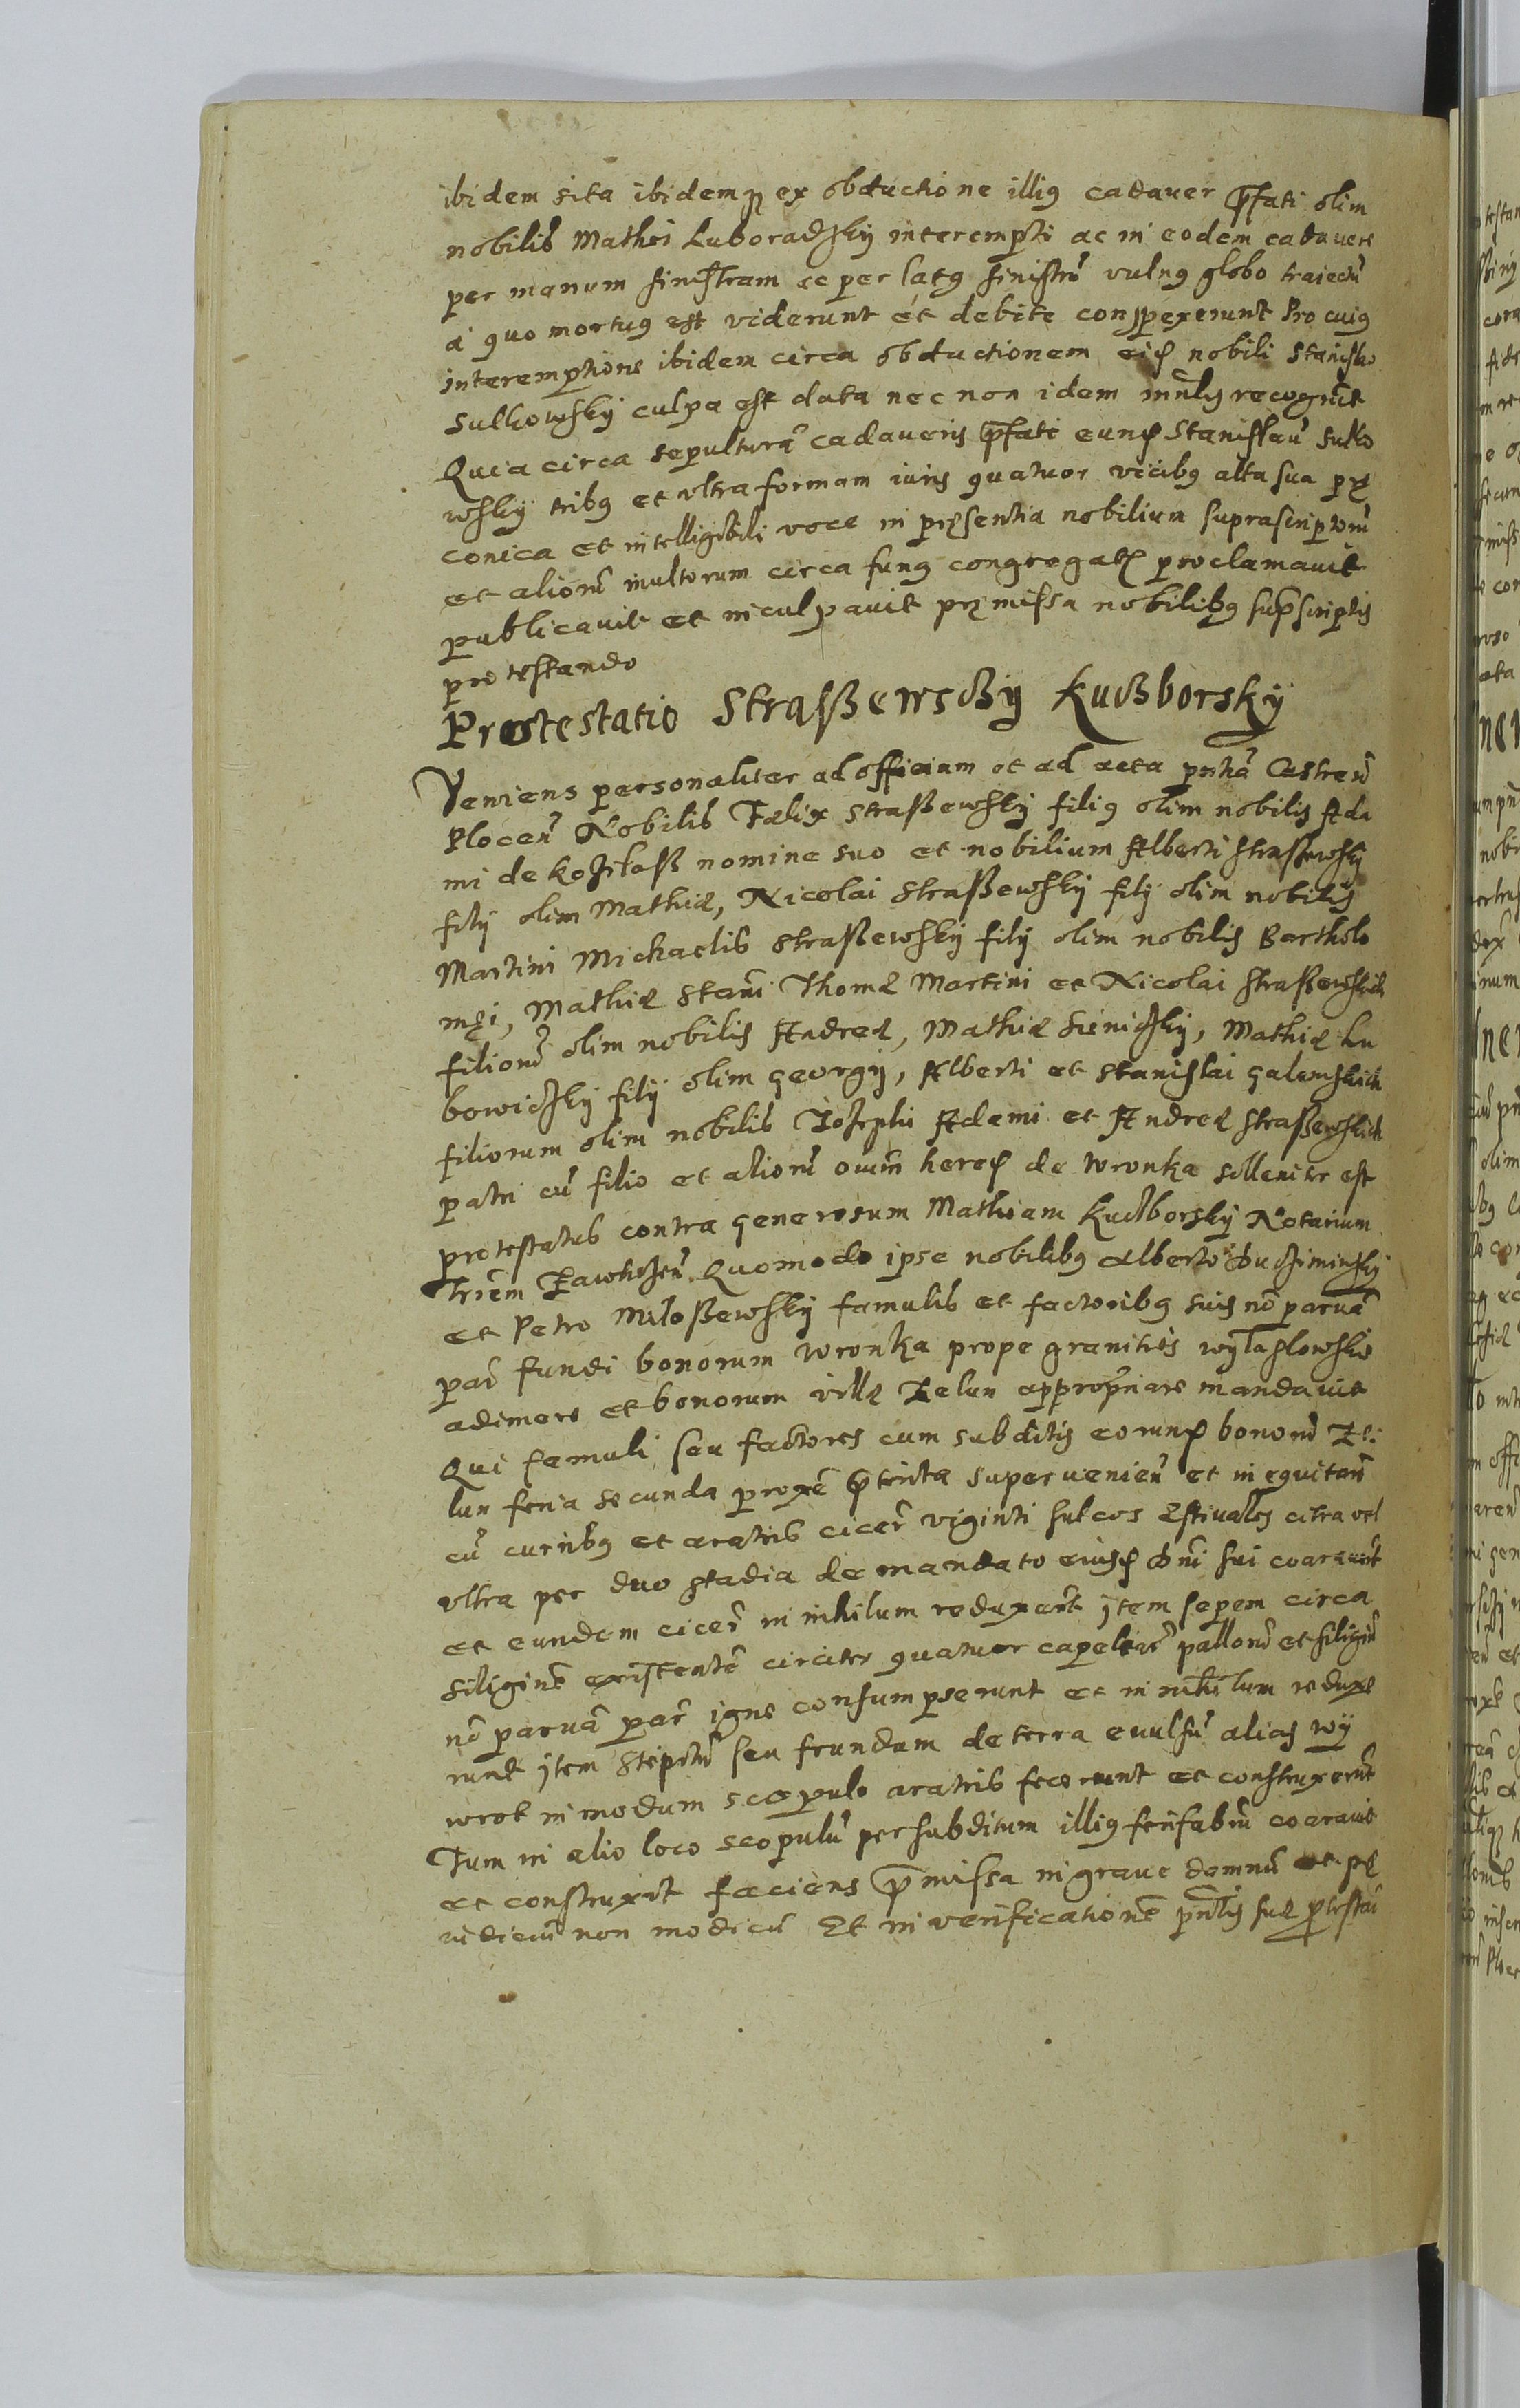 ibidem sita ibidemq ex obductione illig cadaver pfati olim
nobilis Mathei Luboradzky interempti ac in eodem cadavere
per manum sinistram ac per latg sinistrū vulng globo traiectū
a quo mortug est viderunt et debite conspexerunt Pro cuig
interemptione ibidem circa obductionem eiq nobili Stanislao
Sulkowsky culpa est data nec non idem mnlis recognt
Quia circa sepulturā cadaveris pfati eunq Stanislaū Sulko
wsky tribg et vltra formam iuris quatuor vicibg alta sua prę
conica et intelligibili voce in pręsentia nobilium suprascriptorū
et aliorū multorum circa fung congregatq proclamavit
publicavit et inculpavit pręmissa nobilibg supscriptis
protestando
Protestatio Straßewsky Kuczborsky
Veniens personaliter ad officium et ad acta pntia Castren
Plocen Nobilis Fælix Straßewsky filig olim nobilis Ada
mi de Kozitass nomine suo et nobilium Alberti Straßewsky
filij olim Mathiæ, Nicolai Straßewsky filij olim nobilis
Martini Michaelis Straßewsky filij olim nobilis Bartholo
męi, Mathiæ Stani Thomæ Martini et Nicolai Straßewskich
filiorū olim nobilis Andreæ, Mathiæ Sieniczky, Mathiæ Lu
bowiczky filij olim Georgij, Alberti et Stanislai Galemskich
filiorum olim nobilis Josephi Adami et Andreæ Straßewskich
patri cū filio et aliorū oium hereq de Wronka solleniter est
protestatus contra Generosum Mathiam Kuczborsky Notarium
Trrem Zawkrzen Quomodo ipse nobilibg Alberto Duczyminsky
et Petro Miloßewsky famulis et factoribg suis nō parvā
par fundi bonorum Wronka prope granities wylaslowskie
adimere et bonorum villæ Zelun appropriare mandavit
Qui famuli seu factores cum subditis eorunq bonorū Ze:
lun feria secunda proxe pterita supervenien et inequitan
cū curribg et aratris cicer viginti sulcos æstivales citra vel
vltra per duo stadia de mandato eiusq Dni sui coaravert
et eundem cicer in nihilum reduxert item sepem circa
siliginē existentē circiter quatuor capetiar pallorū et siliginū
nō parvā par igne consumpserunt et in nihilum reduxe
runt item stipitū seu frundam de terra evulsū alias wy
wrot in modum scopulo aratris fecerunt et construxerūt
Tum in alio loco scopulū per subditum illig ferifabrū coaravit
et construxit faciens pmissa in grave damnū et pę
iudiciū non modicū Et in verificationē pntis suæ ptestan